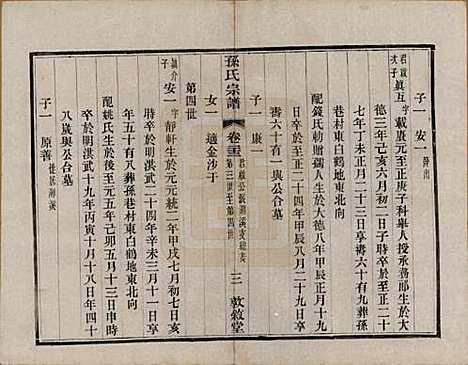 子一 安一 舜出
君嶽次子
眞互 字載賡元至正庚子科舉人授承務郎生於大
德三年己亥六月初二日子時卒於至正二十
七年丁未十二月二十三日享壽六十有九葬孫
巷村東白鶴地東北向
配錢氏朝贈孺人生於大德八年甲辰正月十九
日子時卒於至正二十四年甲辰八月二十一日享
壽六十有一與公合墓
子一 康一
女一 適金沙于
孫氏宗譜 卷三 第三世至第四世 三 敦敘堂
第四世
眞介子
安一 字靜軒生於元元統二年甲戌七月初七日亥
時卒於明洪武二十四年辛未三月十一日享
年五十有八葬孫巷村東白鶴地東北向
配姚氏生於元至元五年己卯五月十三日申時
卒於明洪武十九年丙寅十月十八日年四十
八歲與公合墓
子一 原善 徙居湖溪